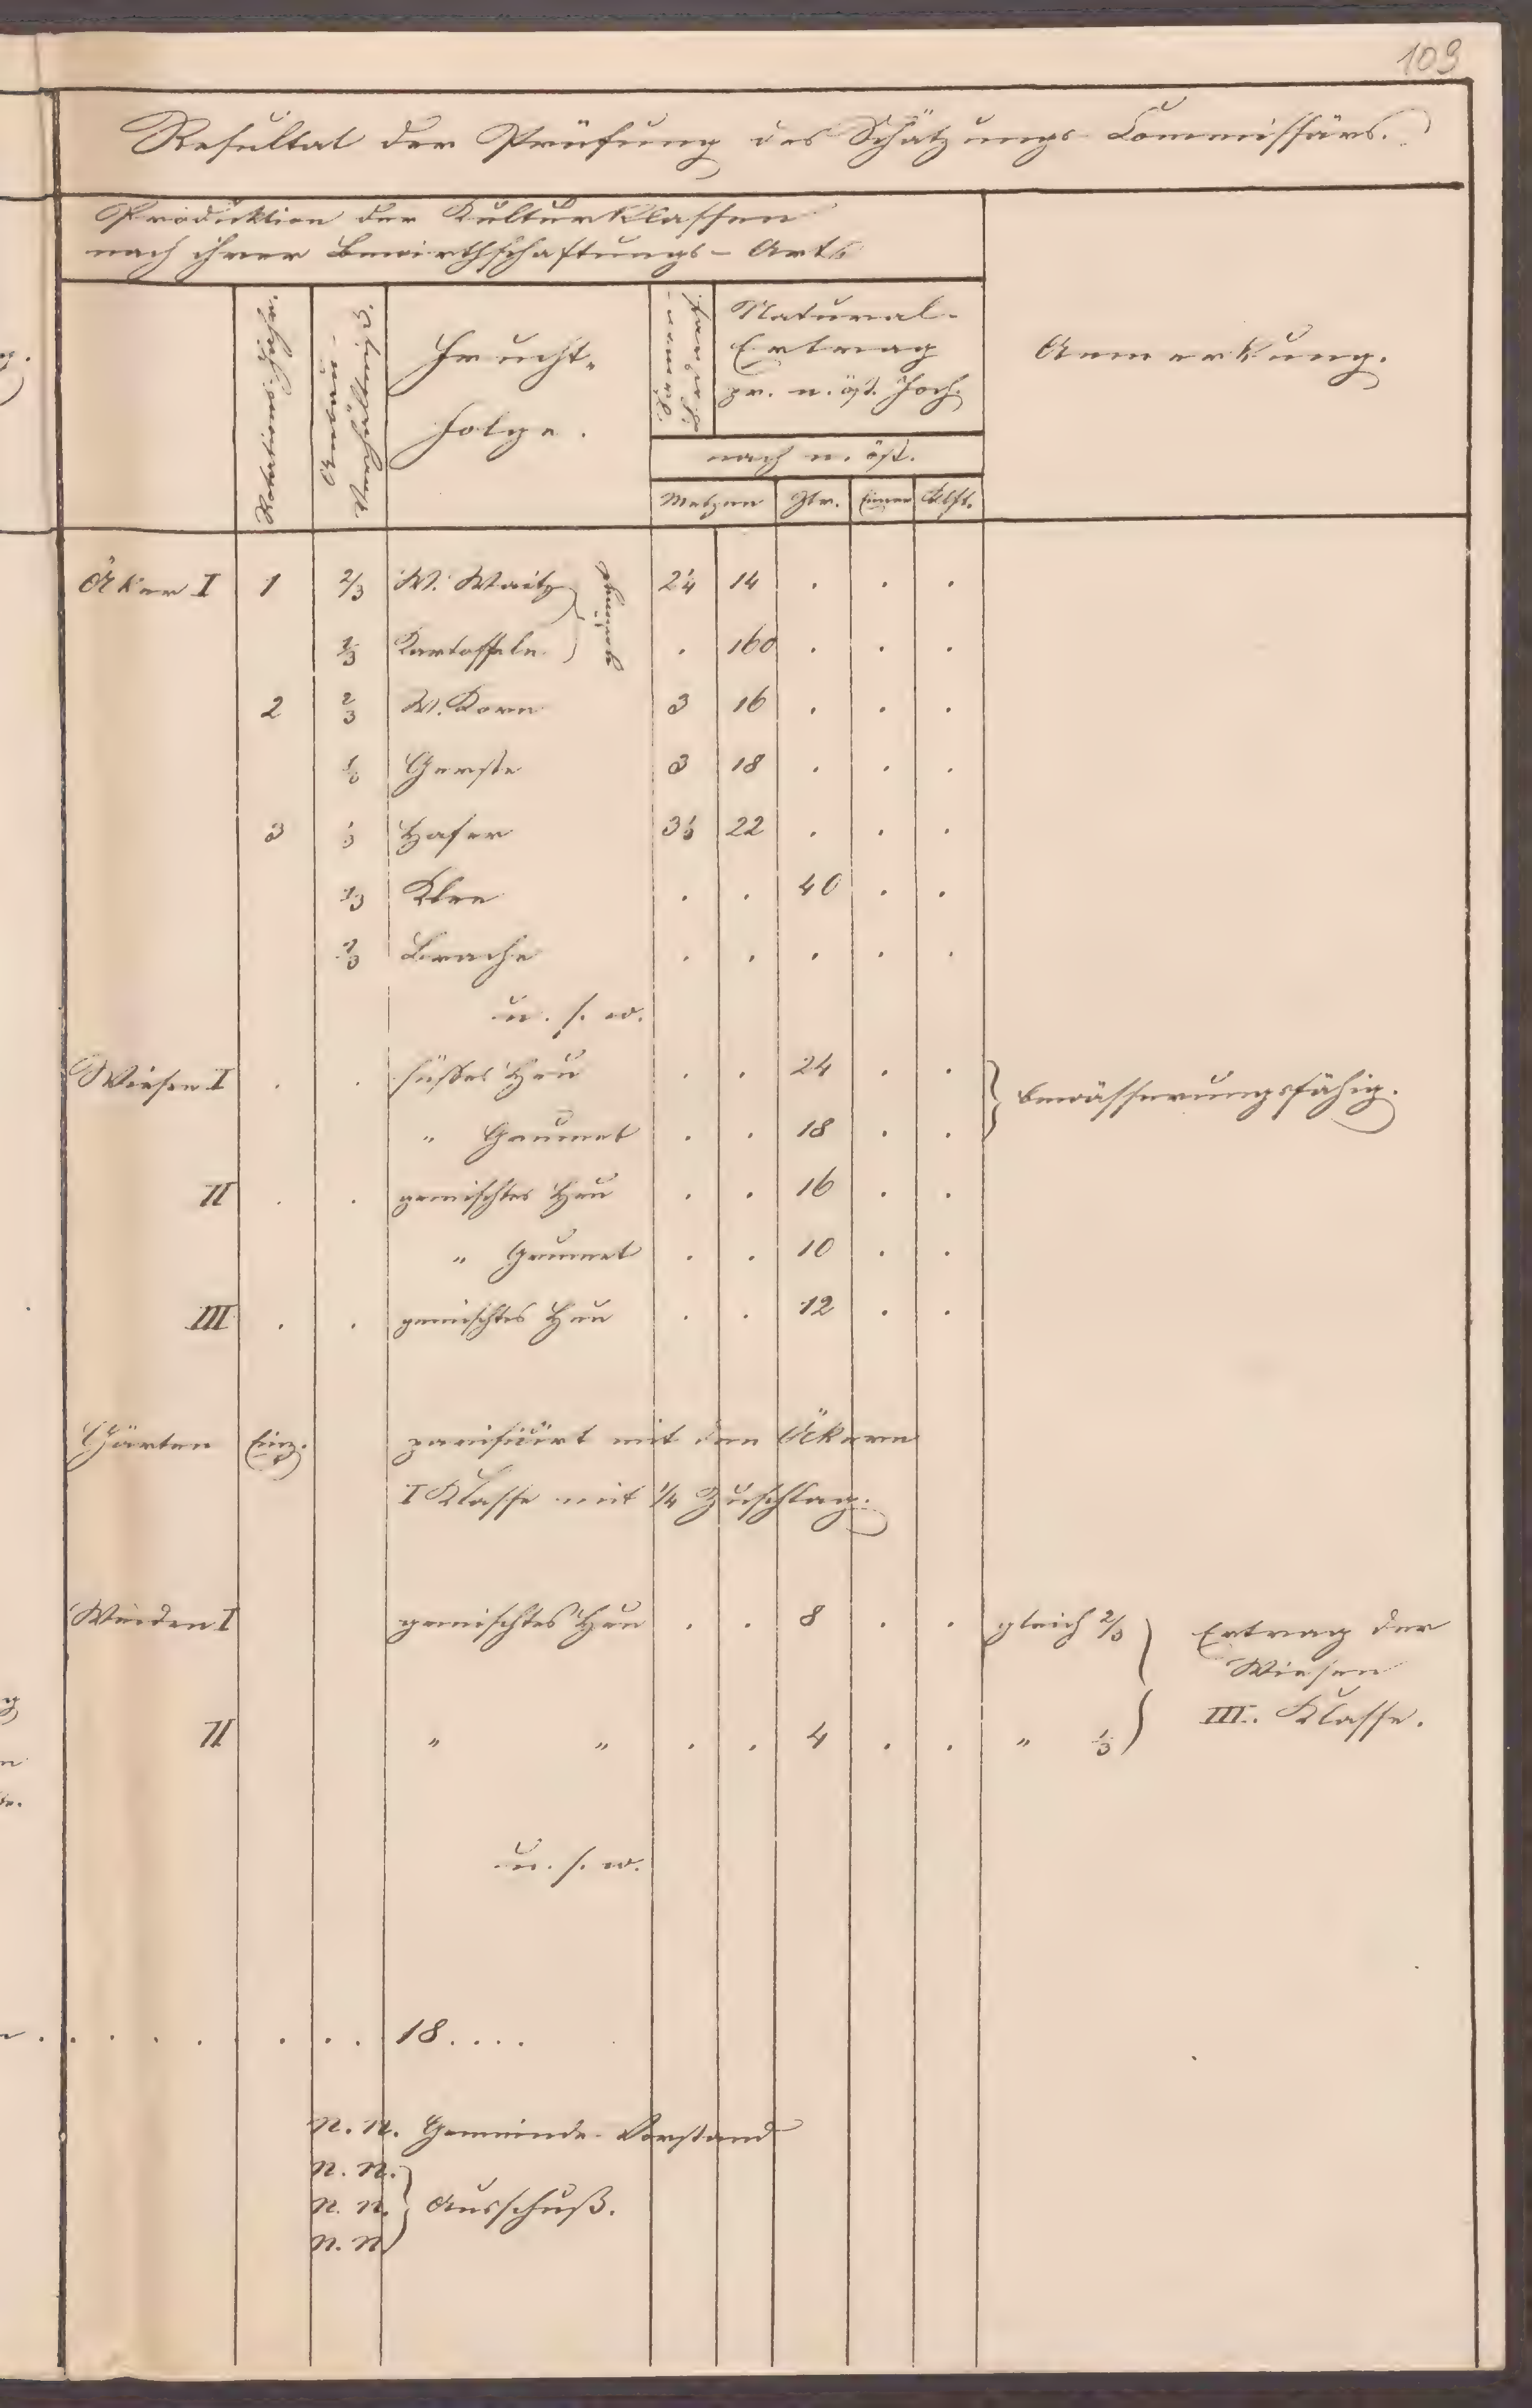 109
Resultat der Prüfung des Schätzungs-Commissärs.
Produktion der Kulturklassen
nach ihrer Bewirthschaftungs-Art
Rotationsjahr.
Frucht-
folge.
Natural-
Ertrag
pr. n. öst. Joch.
Anmerkung.
nach n. öst.
Metzen Ztr. Eimer Klft.
Äker I 1 2/3 W. Waitz 2 1/4 14 . . .
1/3 Kartoffeln . 160 . . .
gedüngt
2 2/3 W. Korn 3 16 . . .
1/3 Gerste 3 18 . . .
3 1/3 Hafer 22 . . .
1/3 Klee . . 40 . .
1/3 Brache . . . . .
u. s. w.
Wiesen I . . süßes Heu . . 24 . . bewässerungsfähig.
" Grumet . . 18 . .
II . . gemischtes Heu . . 16 . .
" Grumet . . 10 . .
III . . gemischtes Heu . . 12 . .
Gärten Einz. parifizirt mit den Äkern
I Klasse mit 1/4 Zuschlag.
Weiden I gemischtes Heu . . 8 . . gleich 2/3 Ertrag der
Wiesen
III. Klasse.
II " " . . 4 . . " 1/3
u. s. w.
. . . . . . . 18....
N. N. Gemeinde-Vorstand
N. N.
N. N. Ausschuß.
N. N.